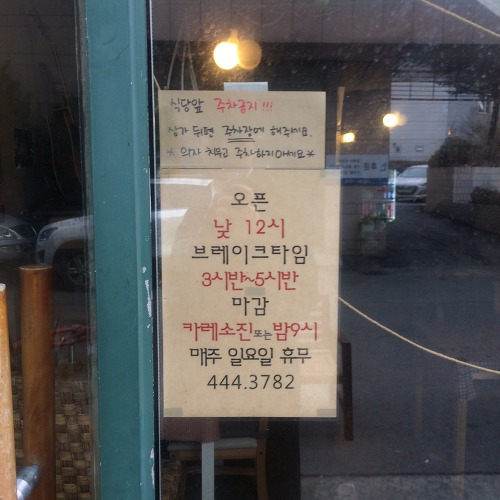 식당앞 주차금지!!!
상가 뒤편 주차장에 해주세요.
* 의자 치우고 주차하지마세요 *
오픈
낮 12시
브레이크타임
3시반~5시반
마감
카레소진또는밤9시
매주 일요일 휴무
444.3782